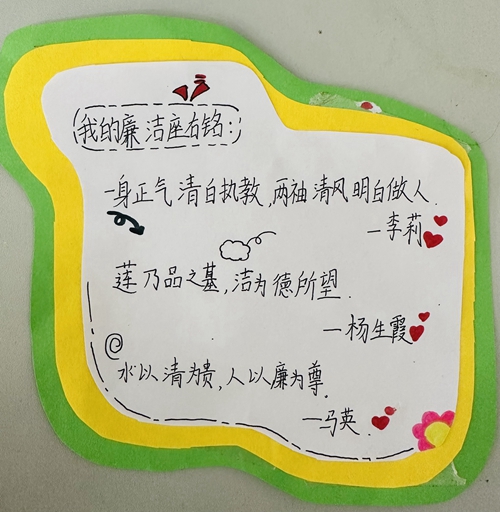 我的廉洁座右铭:
一身正气清白执教,两袖清风明白做人.
—李莉
莲乃品之基,洁为德所望.
—杨生霞
水以清为贵,人以廉为尊.
—马英.